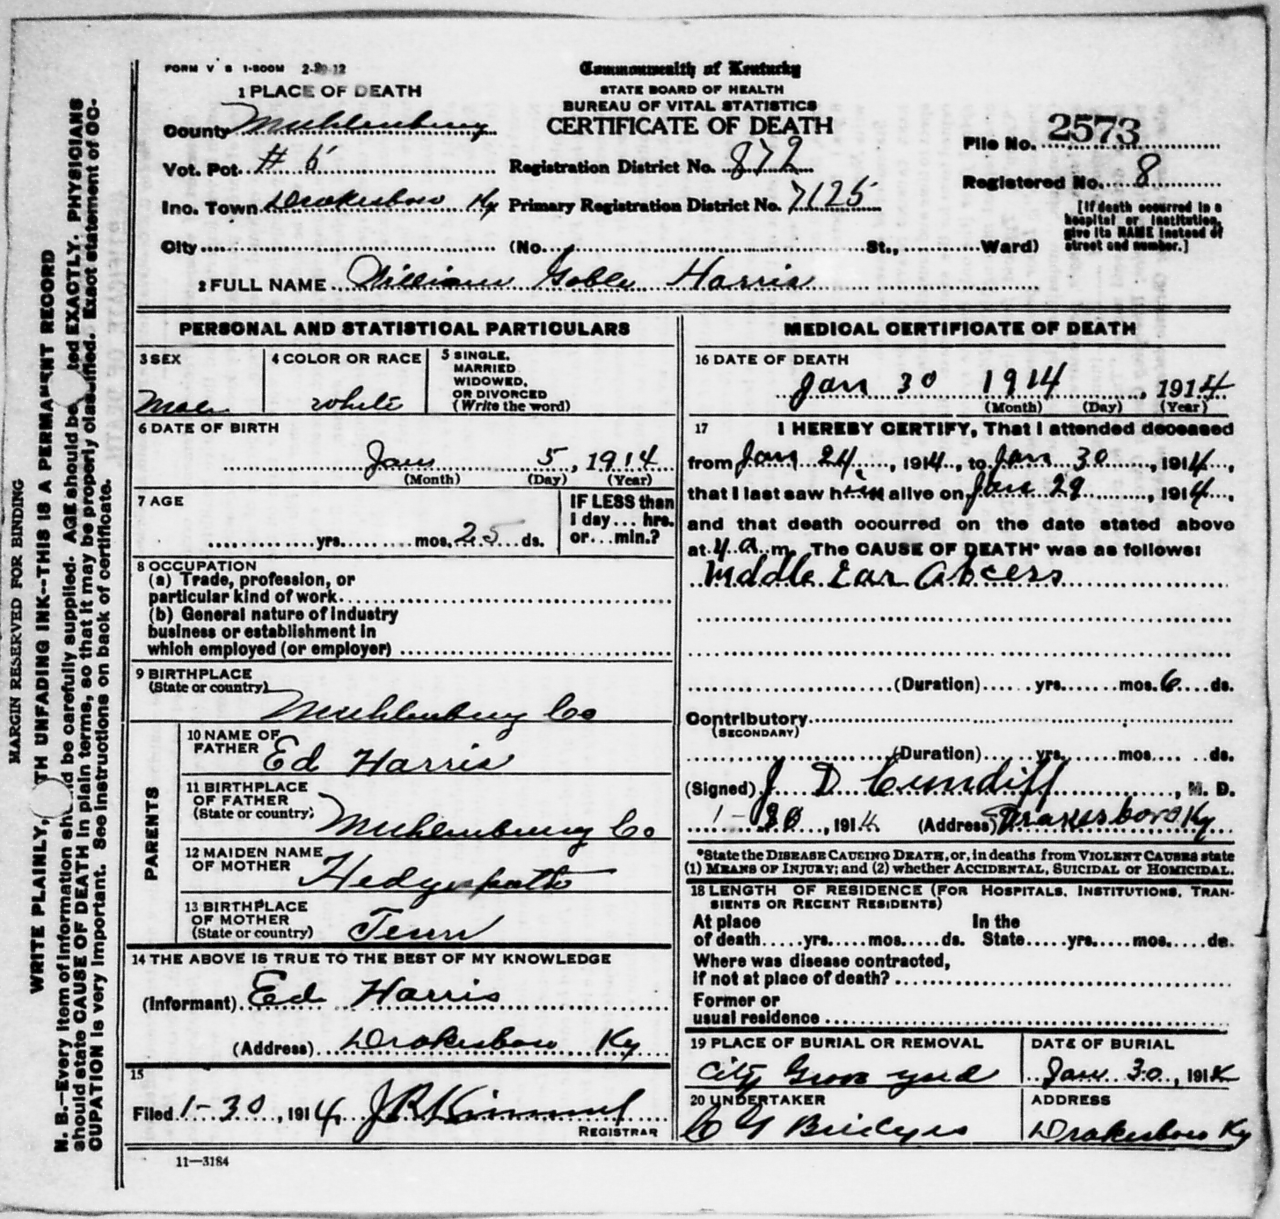 FORM V S 1-500M 2-20-12
Commonwealth of Kentucky
STATE BOARD OF HEALTH
BUREAU OF VITAL STATISTICS
CERTIFICATE OF DEATH
1 PLACE OF DEATH
County Muhlenburg
Vot. Pct. # 6 Registration District No. 872
Ino. Town Drakesboro Ky Primary Registration District No. 7125
City (No. St., Ward)
File No. 2573
Registered No. 8
[If death occurred in a
hospital or institution,
give its NAME instead of
street and number.]
2 FULL NAME William Goble Harris
PERSONAL AND STATISTICAL PARTICULARS
3 SEX
Male
4 COLOR OR RACE
white
5 SINGLE,
MARRIED
WIDOWED,
OR DIVORCED
(Write the word)
6 DATE OF BIRTH
Jan 5, 1914
(Month) (Day) (Year)
7 AGE
yrs. mos. 25 ds.
IF LESS than
1 day... hrs.
or...min.?
8 OCCUPATION
(a) Trade, profession, or
particular kind of work
(b) General nature of industry
business or establishment in
which employed (or employer)
9 BIRTHPLACE
(State or country)
Muhlenburg Co
PARENTS
10 NAME OF
FATHER
Ed Harris
11 BIRTHPLACE
OF FATHER
(State or country)
Muhlenburg Co
12 MAIDEN NAME
OF MOTHER
Hedgepath
13 BIRTHPLACE
OF MOTHER
(State or country)
Tenn
14 THE ABOVE IS TRUE TO THE BEST OF MY KNOWLEDGE
(Informant) Ed Harris
(Address) Drakesboro Ky
15
Filed 1-30, 1914 J R Kimmel
REGISTRAR
11—3184
MEDICAL CERTIFICATE OF DEATH
16 DATE OF DEATH
Jan 30 1914, 1914
(Month) (Day) (Year)
17 I HEREBY CERTIFY, That I attended deceased
from Jan 24, 1914, to Jan 30, 1914,
that I last saw him alive on Jan 29, 1914,
and that death occurred on the date stated above
at 4 a m. The CAUSE OF DEATH* was as follows:
Middle Ear Abcess
(Duration) yrs. mos. 6 ds.
Contributory
(SECONDARY)
(Duration) yrs. mos. ds.
(Signed) J D Cundiff, M. D.
1-30, 1914 (Address) Drakesboro Ky
*State the DISEASE CAUSING DEATH, or, in deaths from VIOLENT CAUSES state
(1) MEANS OF INJURY; and (2) whether ACCIDENTAL, SUICIDAL or HOMICIDAL.
18 LENGTH OF RESIDENCE (FOR HOSPITALS, INSTITUTIONS, TRAN-
SIENTS OR RECENT RESIDENTS)
At place In the
of death yrs. mos. ds. State yrs. mos. ds.
Where was disease contracted,
if not at place of death?
Former or
usual residence
19 PLACE OF BURIAL OR REMOVAL
City Grove yard
DATE OF BURIAL
Jan 30, 1914
20 UNDERTAKER
C Y Bridges
ADDRESS
Drakesboro Ky
MARGIN RESERVED FOR BINDING
WRITE PLAINLY, TH UNFADING INK--THIS IS A PERMANENT RECORD
N. B.—Every item of information should be carefully supplied. AGE should be ted EXACTLY. PHYSICIANS
should state CAUSE OF DEATH in plain terms, so that it may be properly classified. Exact statement of OC-
CUPATION is very important. See instructions on back of certificate.